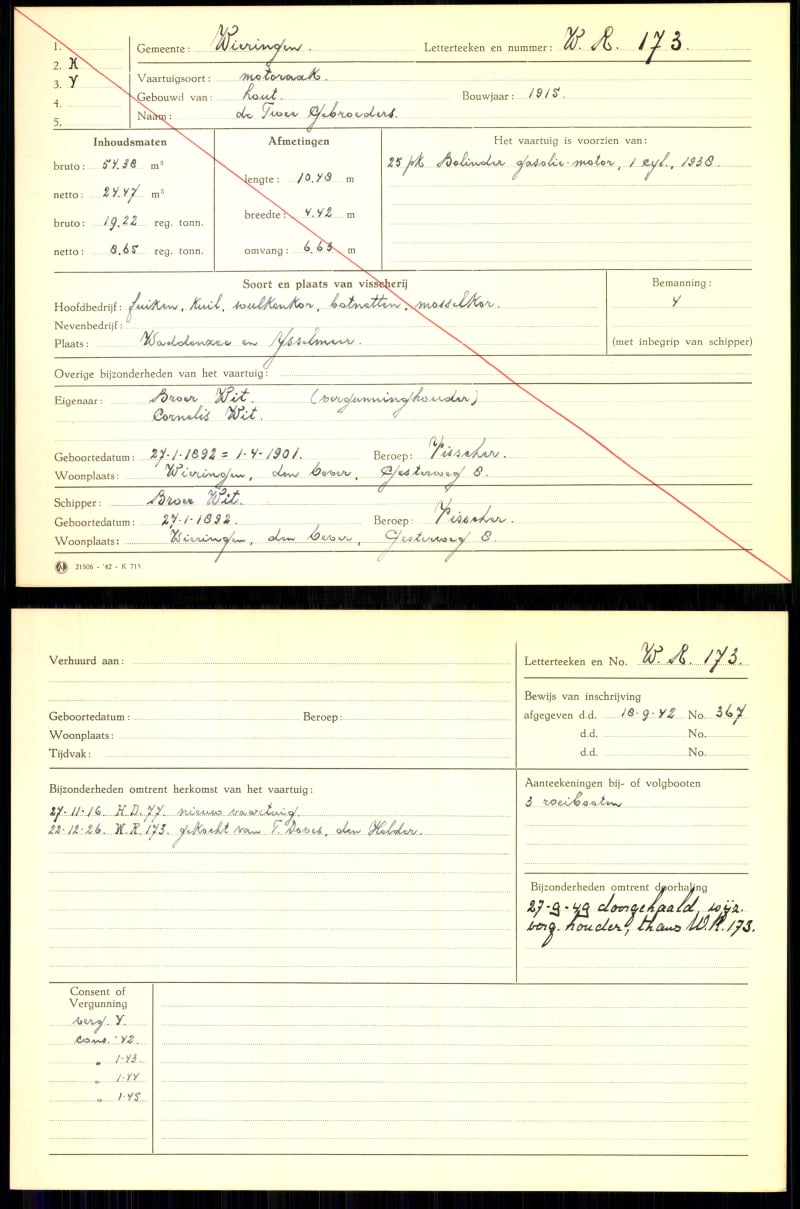 1.
Gemeente: Wieringen. Letterteeken en nummer: W. R. 173.
2. K
3. Y
Vaartuigsoort: motoraak.
4.
Gebouwd van: hout. Bouwjaar: 1915.
5.
Naam: de Twee Gebroeders.
Inhoudsmaten
bruto: 54.38 m³
netto: 24.47 m³
bruto: 19.22 reg. tonn.
netto: 8.65 reg. tonn.
Afmetingen
lengte: 10.48 m
breedte: 4.42 m
omvang: 6.63 m
Het vaartuig is voorzien van:
25 pk Bolinder gasolie-motor, 1 cyl., 1938.
Soort en plaats van visscherij
Hoofdbedrijf: fuiken, kuil, wulkenkor, botnetten, mosselkor.
Nevenbedrijf:
Plaats: Waddenzee en Ysselmeer.
Bemanning:
4
(met inbegrip van schipper)
Overige bijzonderheden van het vaartuig:
Eigenaar: Broer Wit. (vergunninghouder)
Cornelis Wit.
Geboortedatum: 27-1-1892 = 1-4-1901. Beroep: Visscher.
Woonplaats: Wieringen, den Oever, Gesterweg 8.
Schipper: Broer Wit.
Geboortedatum: 27-1-1892. Beroep: Visscher.
Woonplaats: Wieringen, den Oever, Gesterweg 8.
21506 - '42 - K 715
Verhuurd aan:
Geboortedatum: Beroep:
Woonplaats:
Tijdvak:
Letterteeken en No. W. R. 173.
Bewijs van inschrijving
afgegeven d.d. 18-9-42 No. 367
d.d. No.
d.d. No.
Bijzonderheden omtrent herkomst van het vaartuig:
27-11-16. H.D. 77. nieuw vaartuig.
22-12-26. W.R. 173. gekocht van T. den Helder.
Aanteekeningen bij- of volgbooten
3 roeibooten
Bijzonderheden omtrent doorhaling
27-9-49 doorgehaald, wijz.
verg. houder, thans W.R. 173.
Consent of
Vergunning
verg. Y.
cons. -42.
" 1-43.
" 1-44
" 1-45